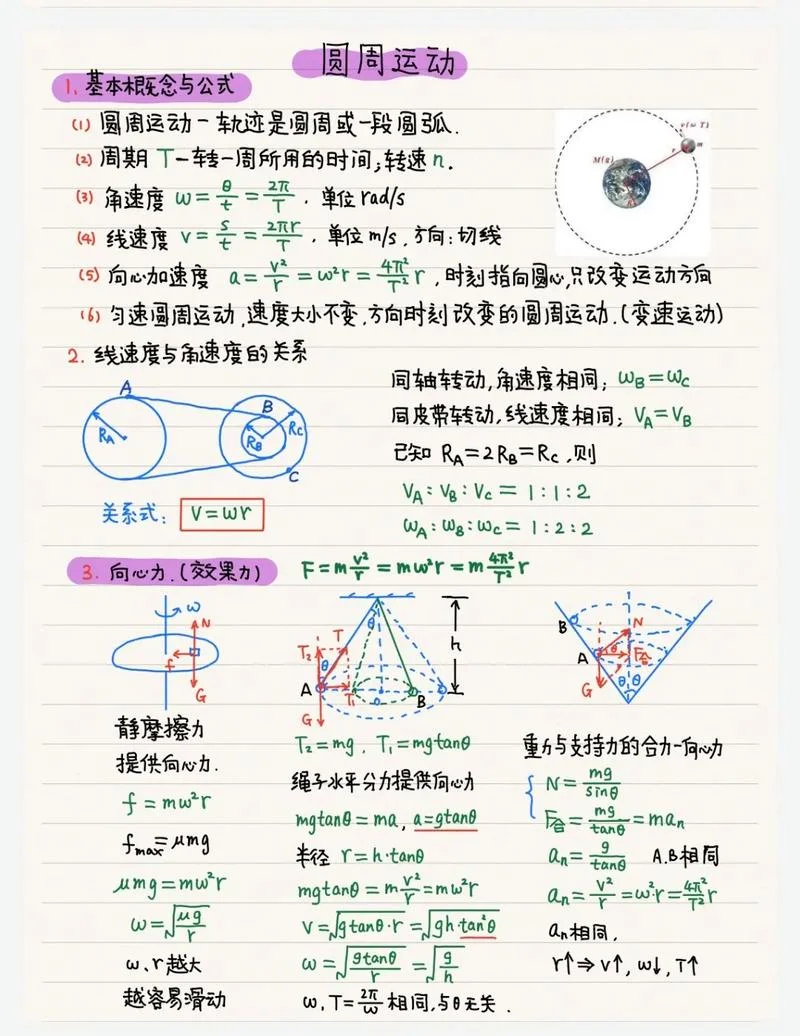 圆周运动
1. 基本概念与公式
(1) 圆周运动-轨迹是圆周或一段圆弧.
(2) 周期 T-转一周所用的时间;转速n.
(3) 角速度 ω = θ/t = 2π/T . 单位 rad/s
(4) 线速度 v = s/t = 2πr/T . 单位 m/s . 方向:切线
(5) 向心加速度 a = v²/r = ω²r = 4π²/T² r , 时刻指向圆心,只改变运动方向
(6) 匀速圆周运动,速度大小不变,方向时刻改变的圆周运动.(变速运动)
M(g)
r
m
2. 线速度与角速度的关系
A
R_A
B
R_B
R_C
C
关系式: V=ωr
同轴转动,角速度相同; ω_B=ω_C
同皮带转动,线速度相同; V_A=V_B
已知 R_A=2R_B=R_C ,则
V_A:V_B:V_C = 1:1:2
ω_A:ω_B:ω_C = 1:2:2
3. 向心力.(效果力) F=m v²/r = mω²r = m 4π²/T² r
ω
N
f
G
静摩擦力
提供向心力.
f = mω²r
f_max = μmg
μmg = mω²r
ω = √(μg/r)
ω、r越大
越容易滑动
θ
T₂
T
θ
h
A
T₁
o
B
G
T₂=mg . T₁=mgtanθ
绳子水平分力提供向心力
mgtanθ = ma, a=gtanθ
半径 r=h·tanθ
mgtanθ = m v²/r = mω²r
V = √(gtanθ·r) = √(gh·tan²θ)
ω = √(gtanθ/r) = √(g/h)
ω、T=2π/ω 相同,与θ无关 .
B
N
A
θ
F合
G
θ θ
重力与支持力的合力-向心力
N = mg/sinθ
F合 = mg/tanθ = ma_n
a_n = g/tanθ A.B相同
a_n = v²/r = ω²r = 4π²/T² r
a_n相同,
r↑⇒v↑, ω↓, T↑